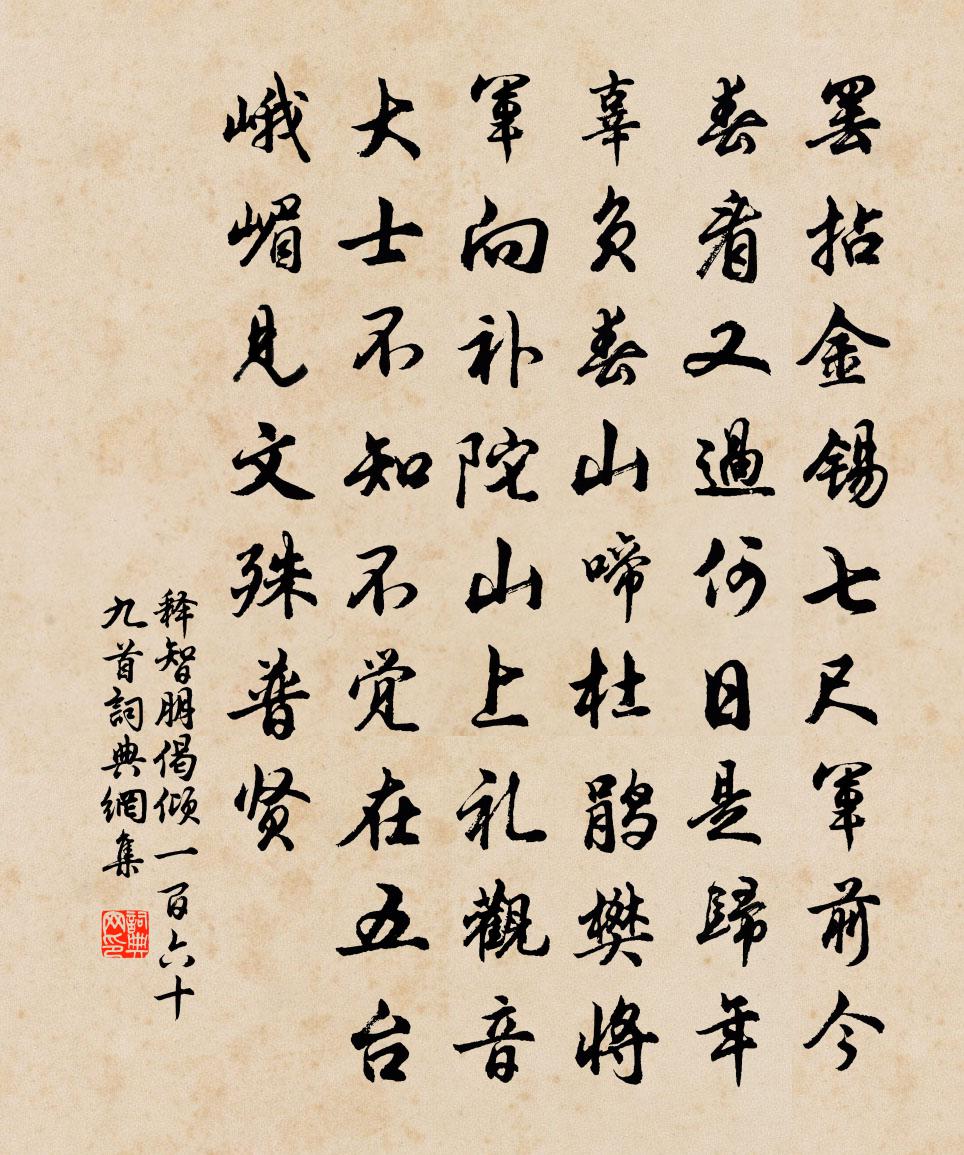 罢拈金锡七尺军前今
春看又過何日是歸年
辜负春山啼杜鹃樊将
军向补陀山上礼觀音
大士不知不觉在五台
峨嵋見文殊普贤
释智朋偈倾一百六十
九首詞典網集
詞典网印